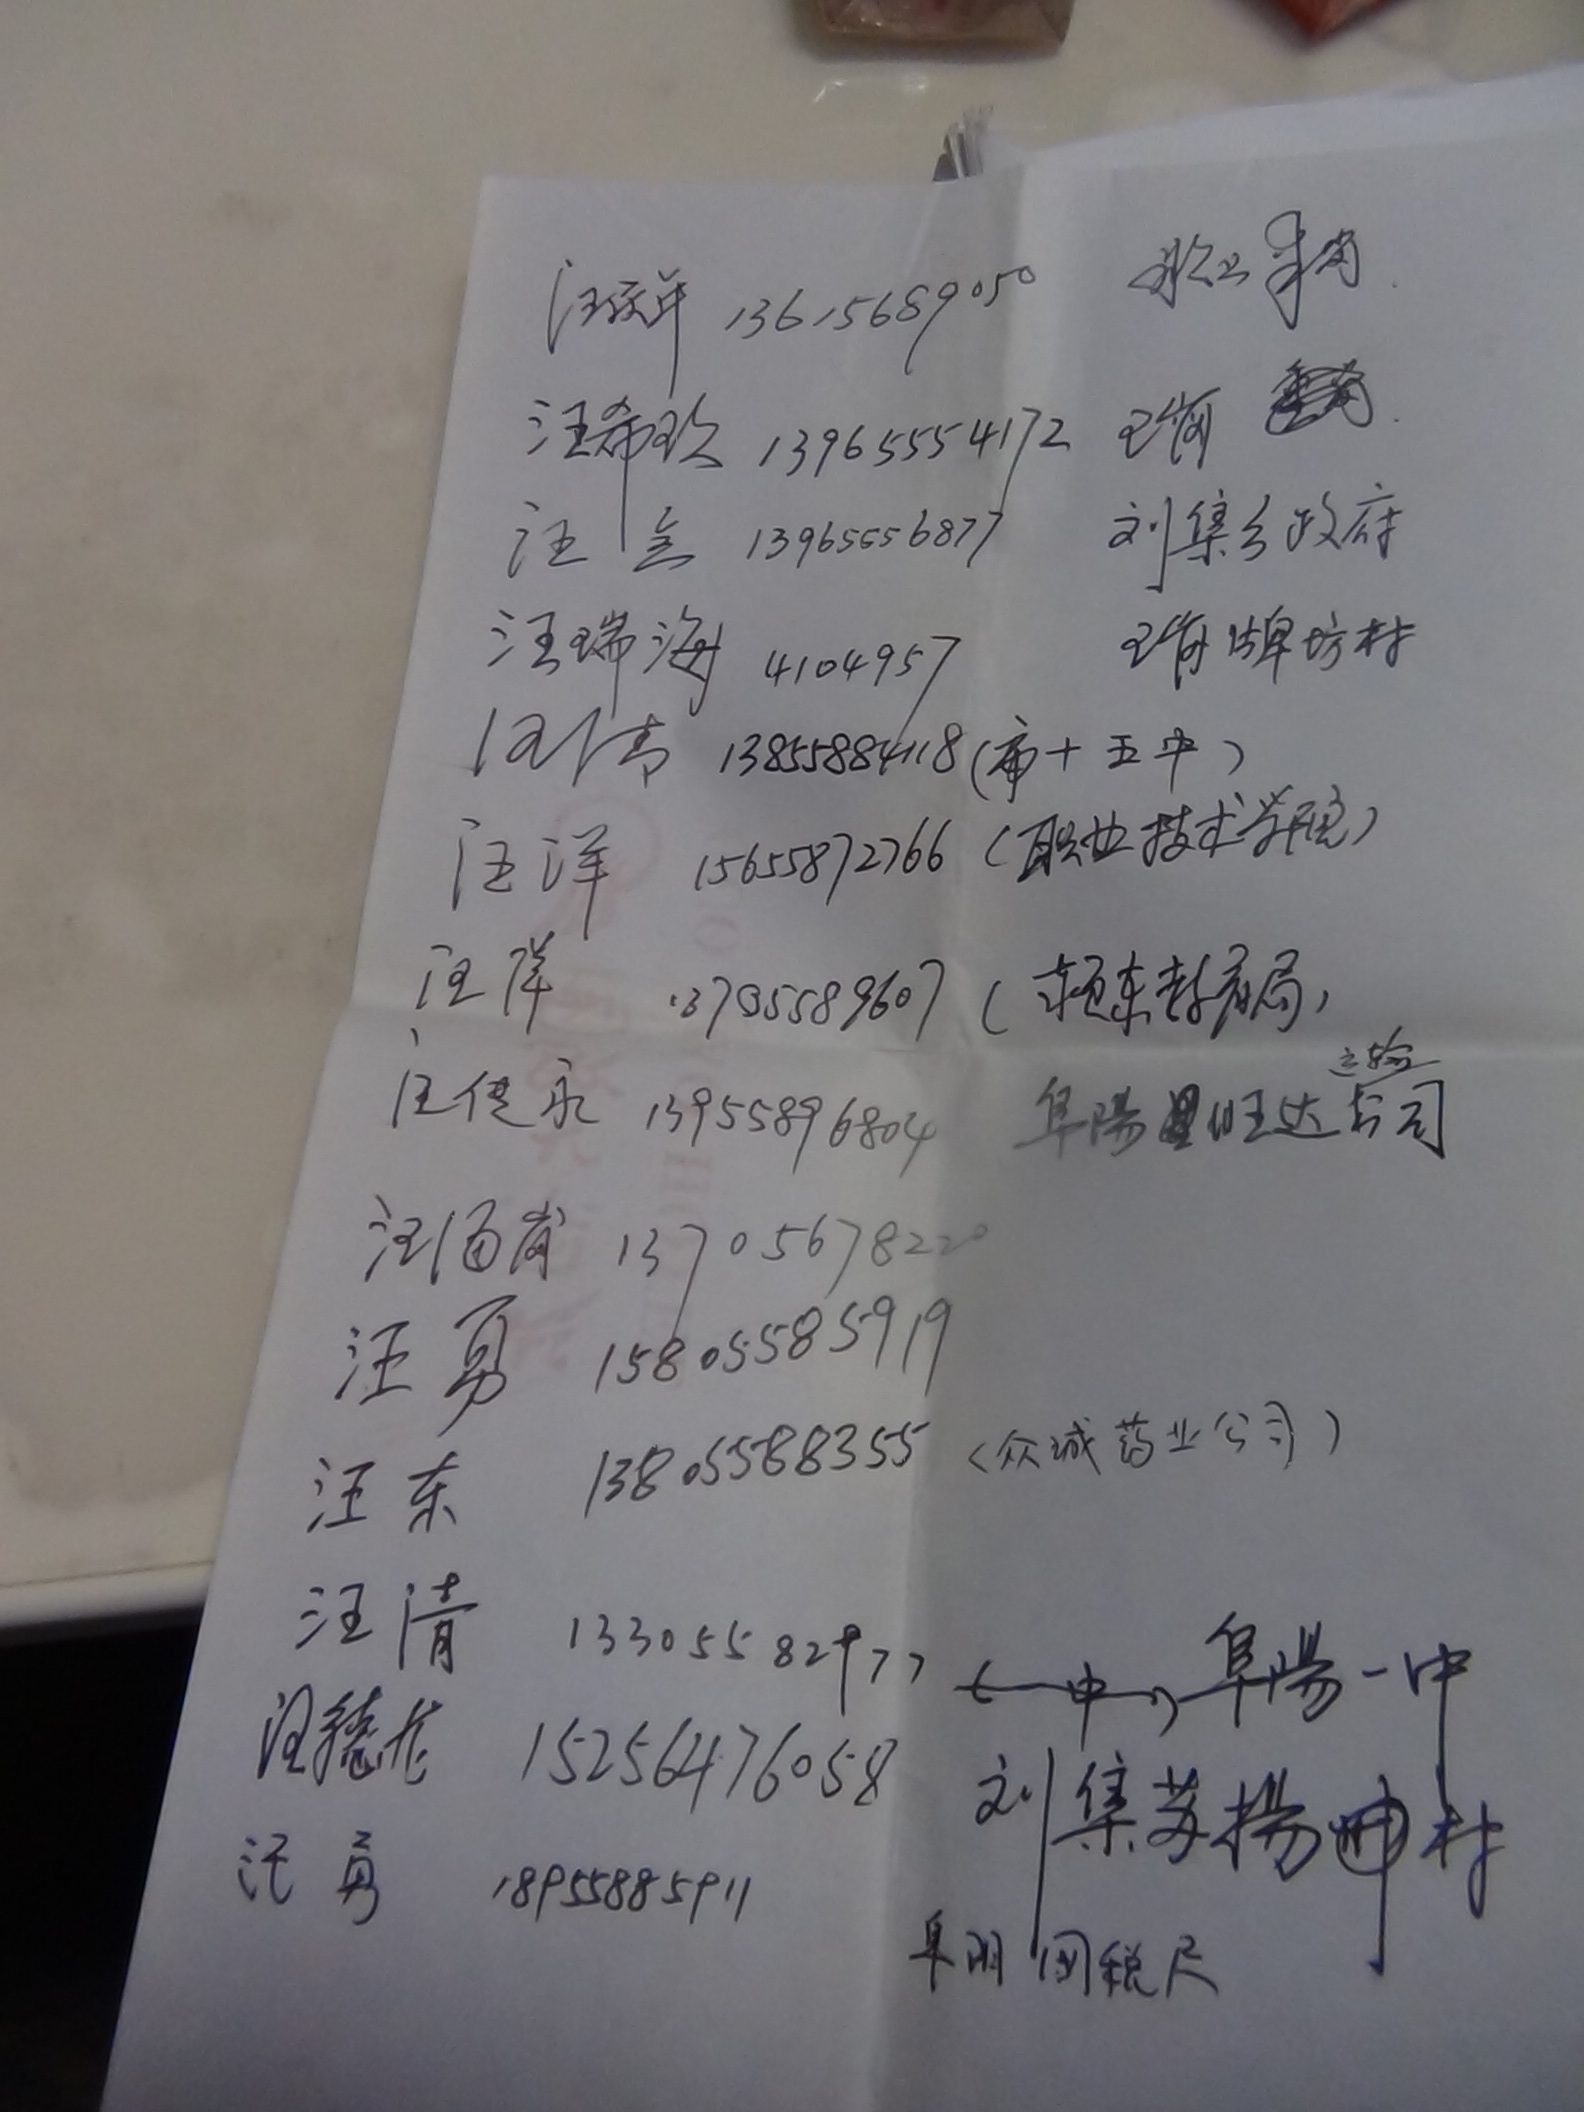 汪 13615689050
汪希玖 13965554172
汪 13965556877 刘集乡政府
汪瑞海 4104957 牌坊村
汪倩 13855884118(市十五中)
汪洋 15655872766(职业技术学院)
汪洋 13705589607(颍东教育局)
运输
汪使永 13955896804 阜陽旺达公司
汪 13705678220
汪勇 15805585919
汪东 13805588355(众诚药业公司)
汪清 13305582977 阜陽一中
汪德龙 15256476058 刘集苏杨村
汪勇 18955885911 阜阳国税局